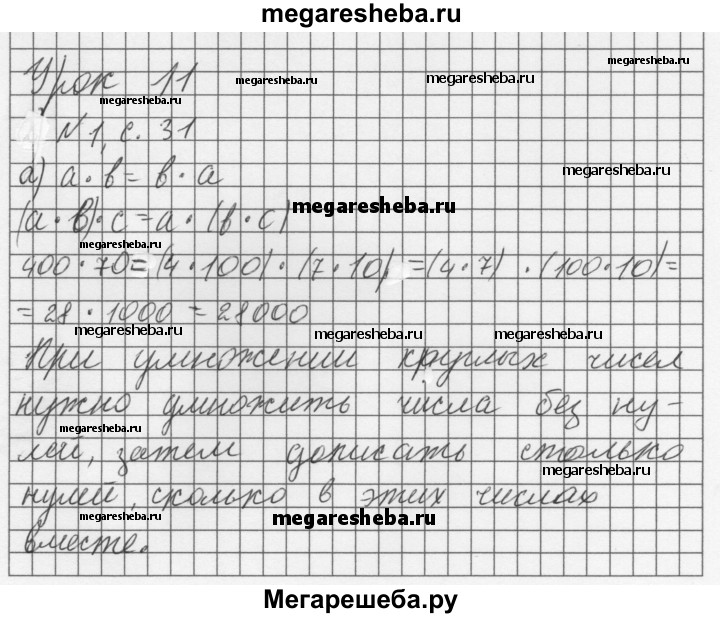 megaresheba.ru
Урок 11
megaresheba.ru
megaresheba.ru
megaresheba.ru
megaresheba.ru
1) №1, с. 31
megaresheba.ru
а) а·в= в·а
megaresheba.ru
(а·в)·с=а·(в·с)
megaresheba.ru
400·70=(4·100)·(7·10)=(4·7)·(100·10)=
=28·1000=28000
megaresheba.ru
megaresheba.ru
megaresheba.ru
При умножении круглых чисел
нужно умножить числа без ну-
megaresheba.ru
лей, затем дописать столько
megaresheba.ru
нулей, сколько в этих числах
megaresheba.ru
megaresheba.ru
вместе.
Мегарешеба.ру